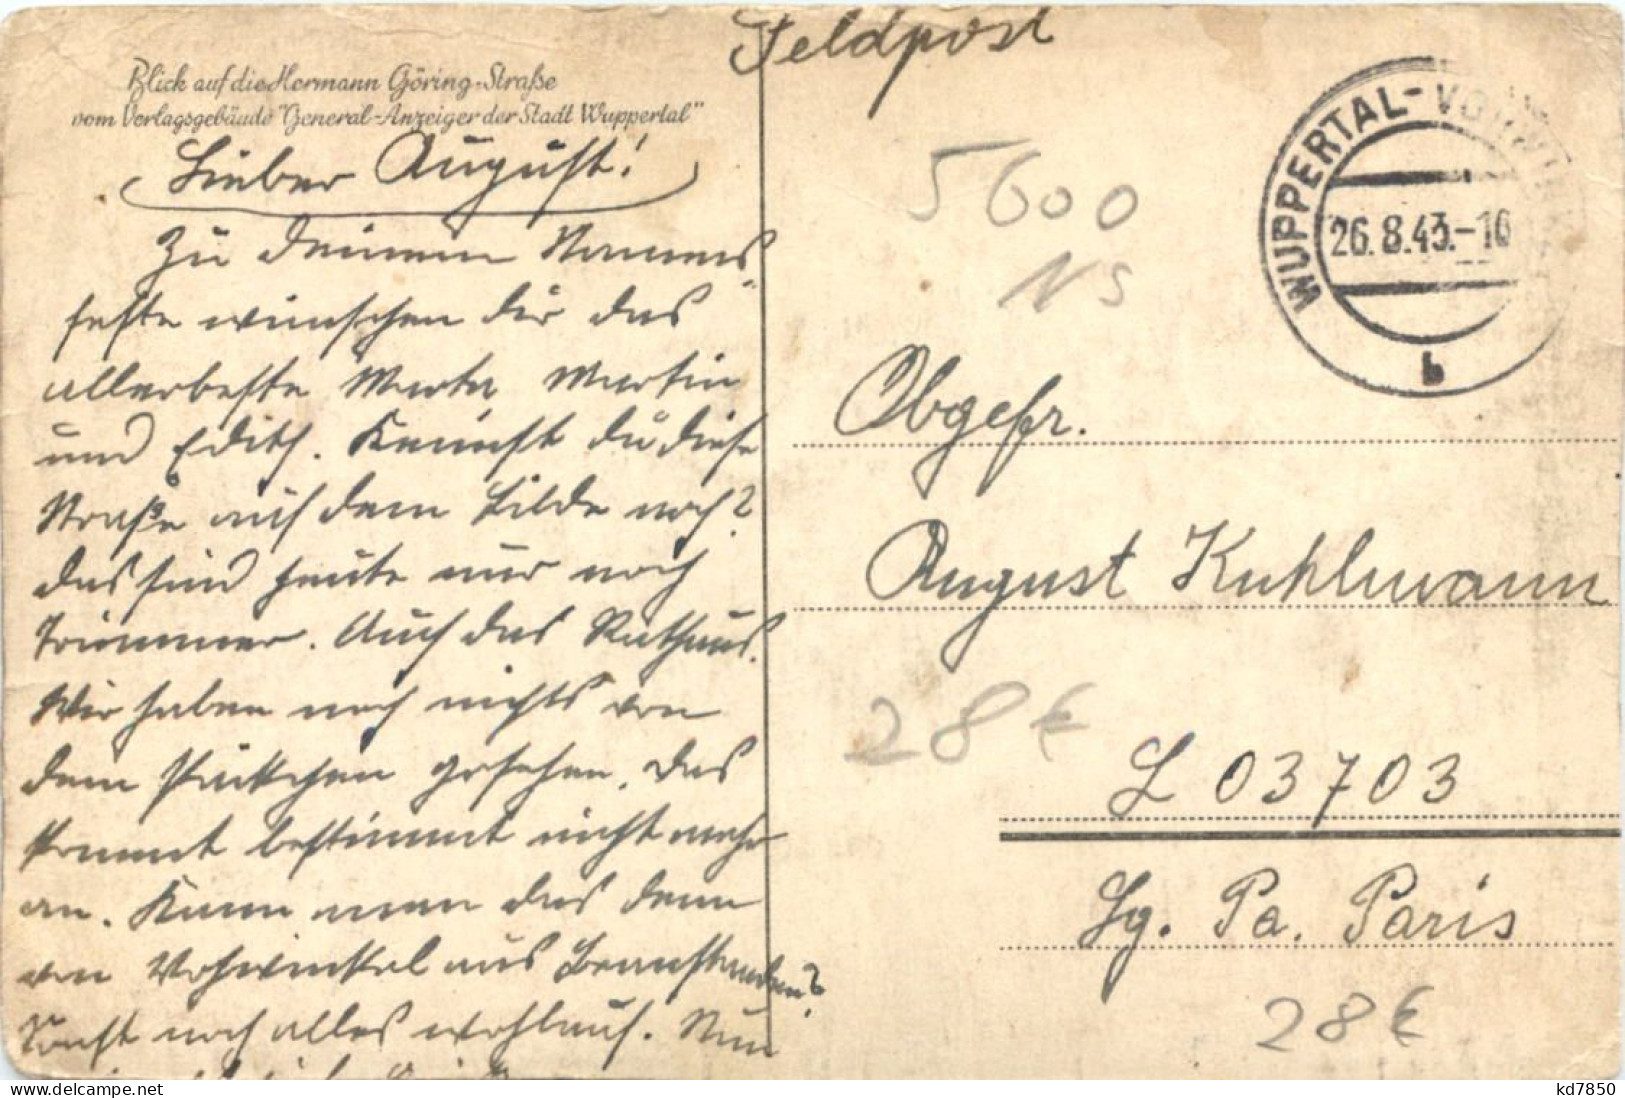 Feldpost
Blick auf die Hermann Göring-Straße
vom Verlagsgebäude "General-Anzeiger der Stadt Wuppertal"
Lieber August!
Zu deinem Namens-
feste wünschen dir das
allerbeste Marta Martin
und Edith. Kennst du diese
Straße auf dem Bilde noch?
das sind heute nur noch
Trümmer. Auch das Rathaus.
Wir haben noch nichts von
dem Päckchen gesehen. das
kommt bestimmt nicht mehr
an. Kann man das denn
von Vohwinkel aus
Sonst noch alles wohlauf. Nun
WUPPERTAL-VOHW
26.8.43.-10
b
5600
NS
Obgefr.
August Kuhlmann
28€
L 03703
Lg. Pa. Paris
28€
www.delcampe.net
kd7850